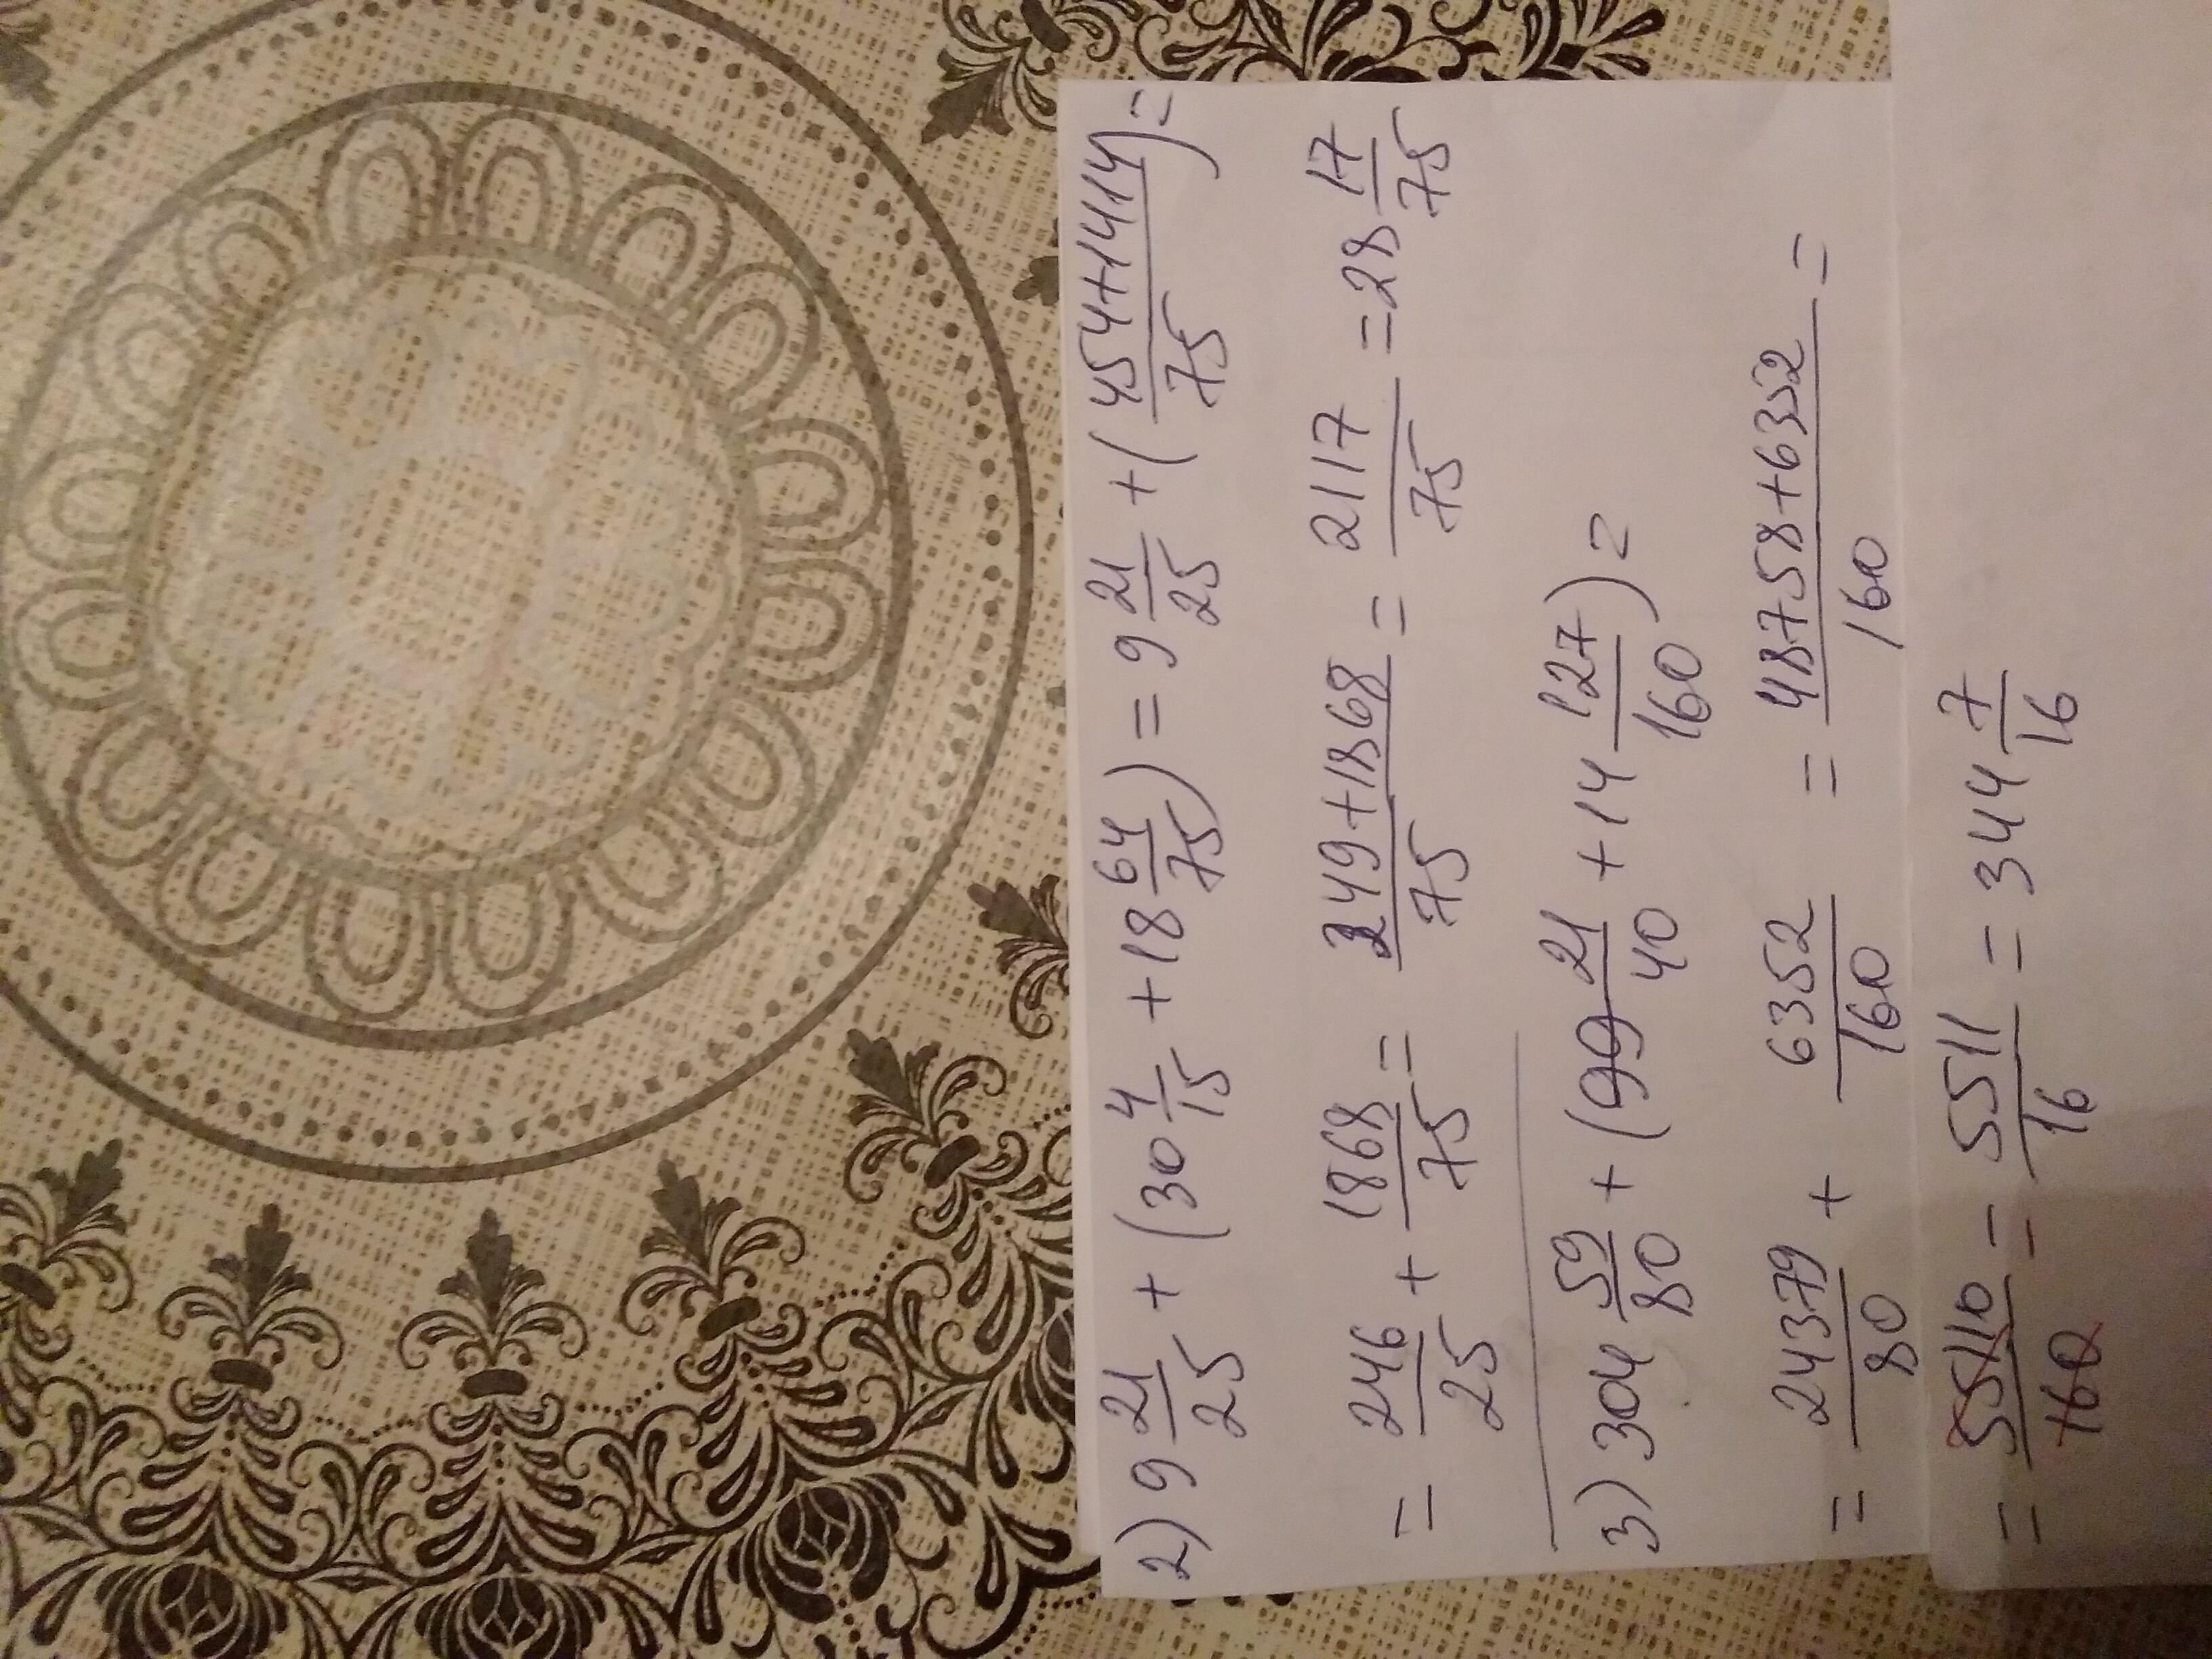 2) 9 21/25 + (30 4/15 + 18 64/75) = 9 21/25 + (454+1414/75) =
= 246/25 + 1868/75 = 249+1868/75 = 2117/75 = 28 17/75
3) 304 59/80 + (99 21/40 + 14 127/160) =
= 24379/80 + 6352/160 = 48758+6352/160 =
= 55110/160 - 5511/16 = 344 7/16